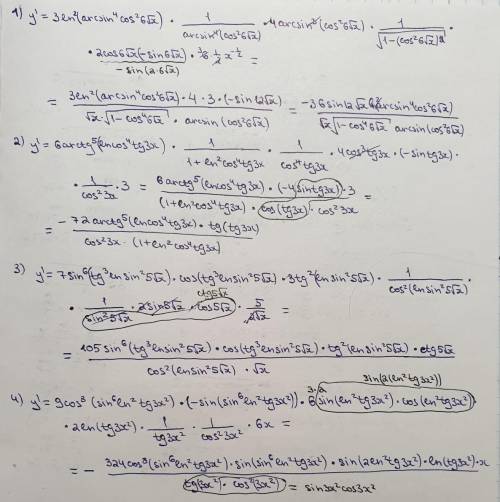 1) y' = 3 ln²(arcsin⁴cos²6√x) · 1/(arcsin⁴(cos²6√x)) · 4arcsin³(cos²6√x) · 1/√(1-(cos²6√x)²) ·
· 2cos6√x(-sin6√x)/(-sin(2·6√x)) · ³6 · 1/2 x^(-1/2) =
= 3ln²(arcsin⁴cos²6√x) · 4 · 3 · (-sin12√x)/(√x · √(1-cos⁴6√x) · arcsin(cos²6√x)) = -36sin12√x ln²(arcsin⁴cos²6√x)/(√x √(1-cos⁴6√x) arcsin(cos²6√x))
2) y' = 6arctg⁵(lncos⁴tg3x) · 1/(1+ln²cos⁴tg3x) · 1/(cos⁴tg3x) · 4cos³tg3x · (-sintg3x) ·
· 1/(cos²3x) · 3 = 6arctg⁵(lncos⁴tg3x) · (-4sintg3x) · 3/((1+ln²cos⁴tg3x) · cos(tg3x) · cos²3x) =
= -72arctg⁵(lncos⁴tg3x) · tg(tg3x)/(cos²3x · (1+ln²cos⁴tg3x))
3) y' = 7sin⁶(tg³lnsin²5√x) · cos(tg³lnsin²5√x) · 3tg²(lnsin²5√x) · 1/(cos²(lnsin²5√x)) ·
ctg5√x
· 1/(sin²5√x) · 2sin5√x · cos5√x · 5/(2√x) =
= 105sin⁶(tg³lnsin²5√x) · cos(tg³lnsin²5√x) · tg²(lnsin²5√x) · ctg5√x/(cos²(lnsin²5√x) · √x)
sin(2(ln²tg3x²))
4) y' = 9cos⁸(sin⁶ln²tg3x²) · (-sin(sin⁶ln²tg3x²)) · 6 3·2 sin(ln²tg3x²) · cos(ln²tg3x²) ·
· 2ln(tg3x²) · 1/(tg3x²) · 1/(cos²3x²) · 6x =
= - 324cos⁸(sin⁶ln²tg3x²) · sin(sin⁶ln²tg3x²) · sin(2ln²tg3x²) · ln(tg3x²) · x/(tg(3x²) · cos²(3x²)) = sin3x²cos3x²